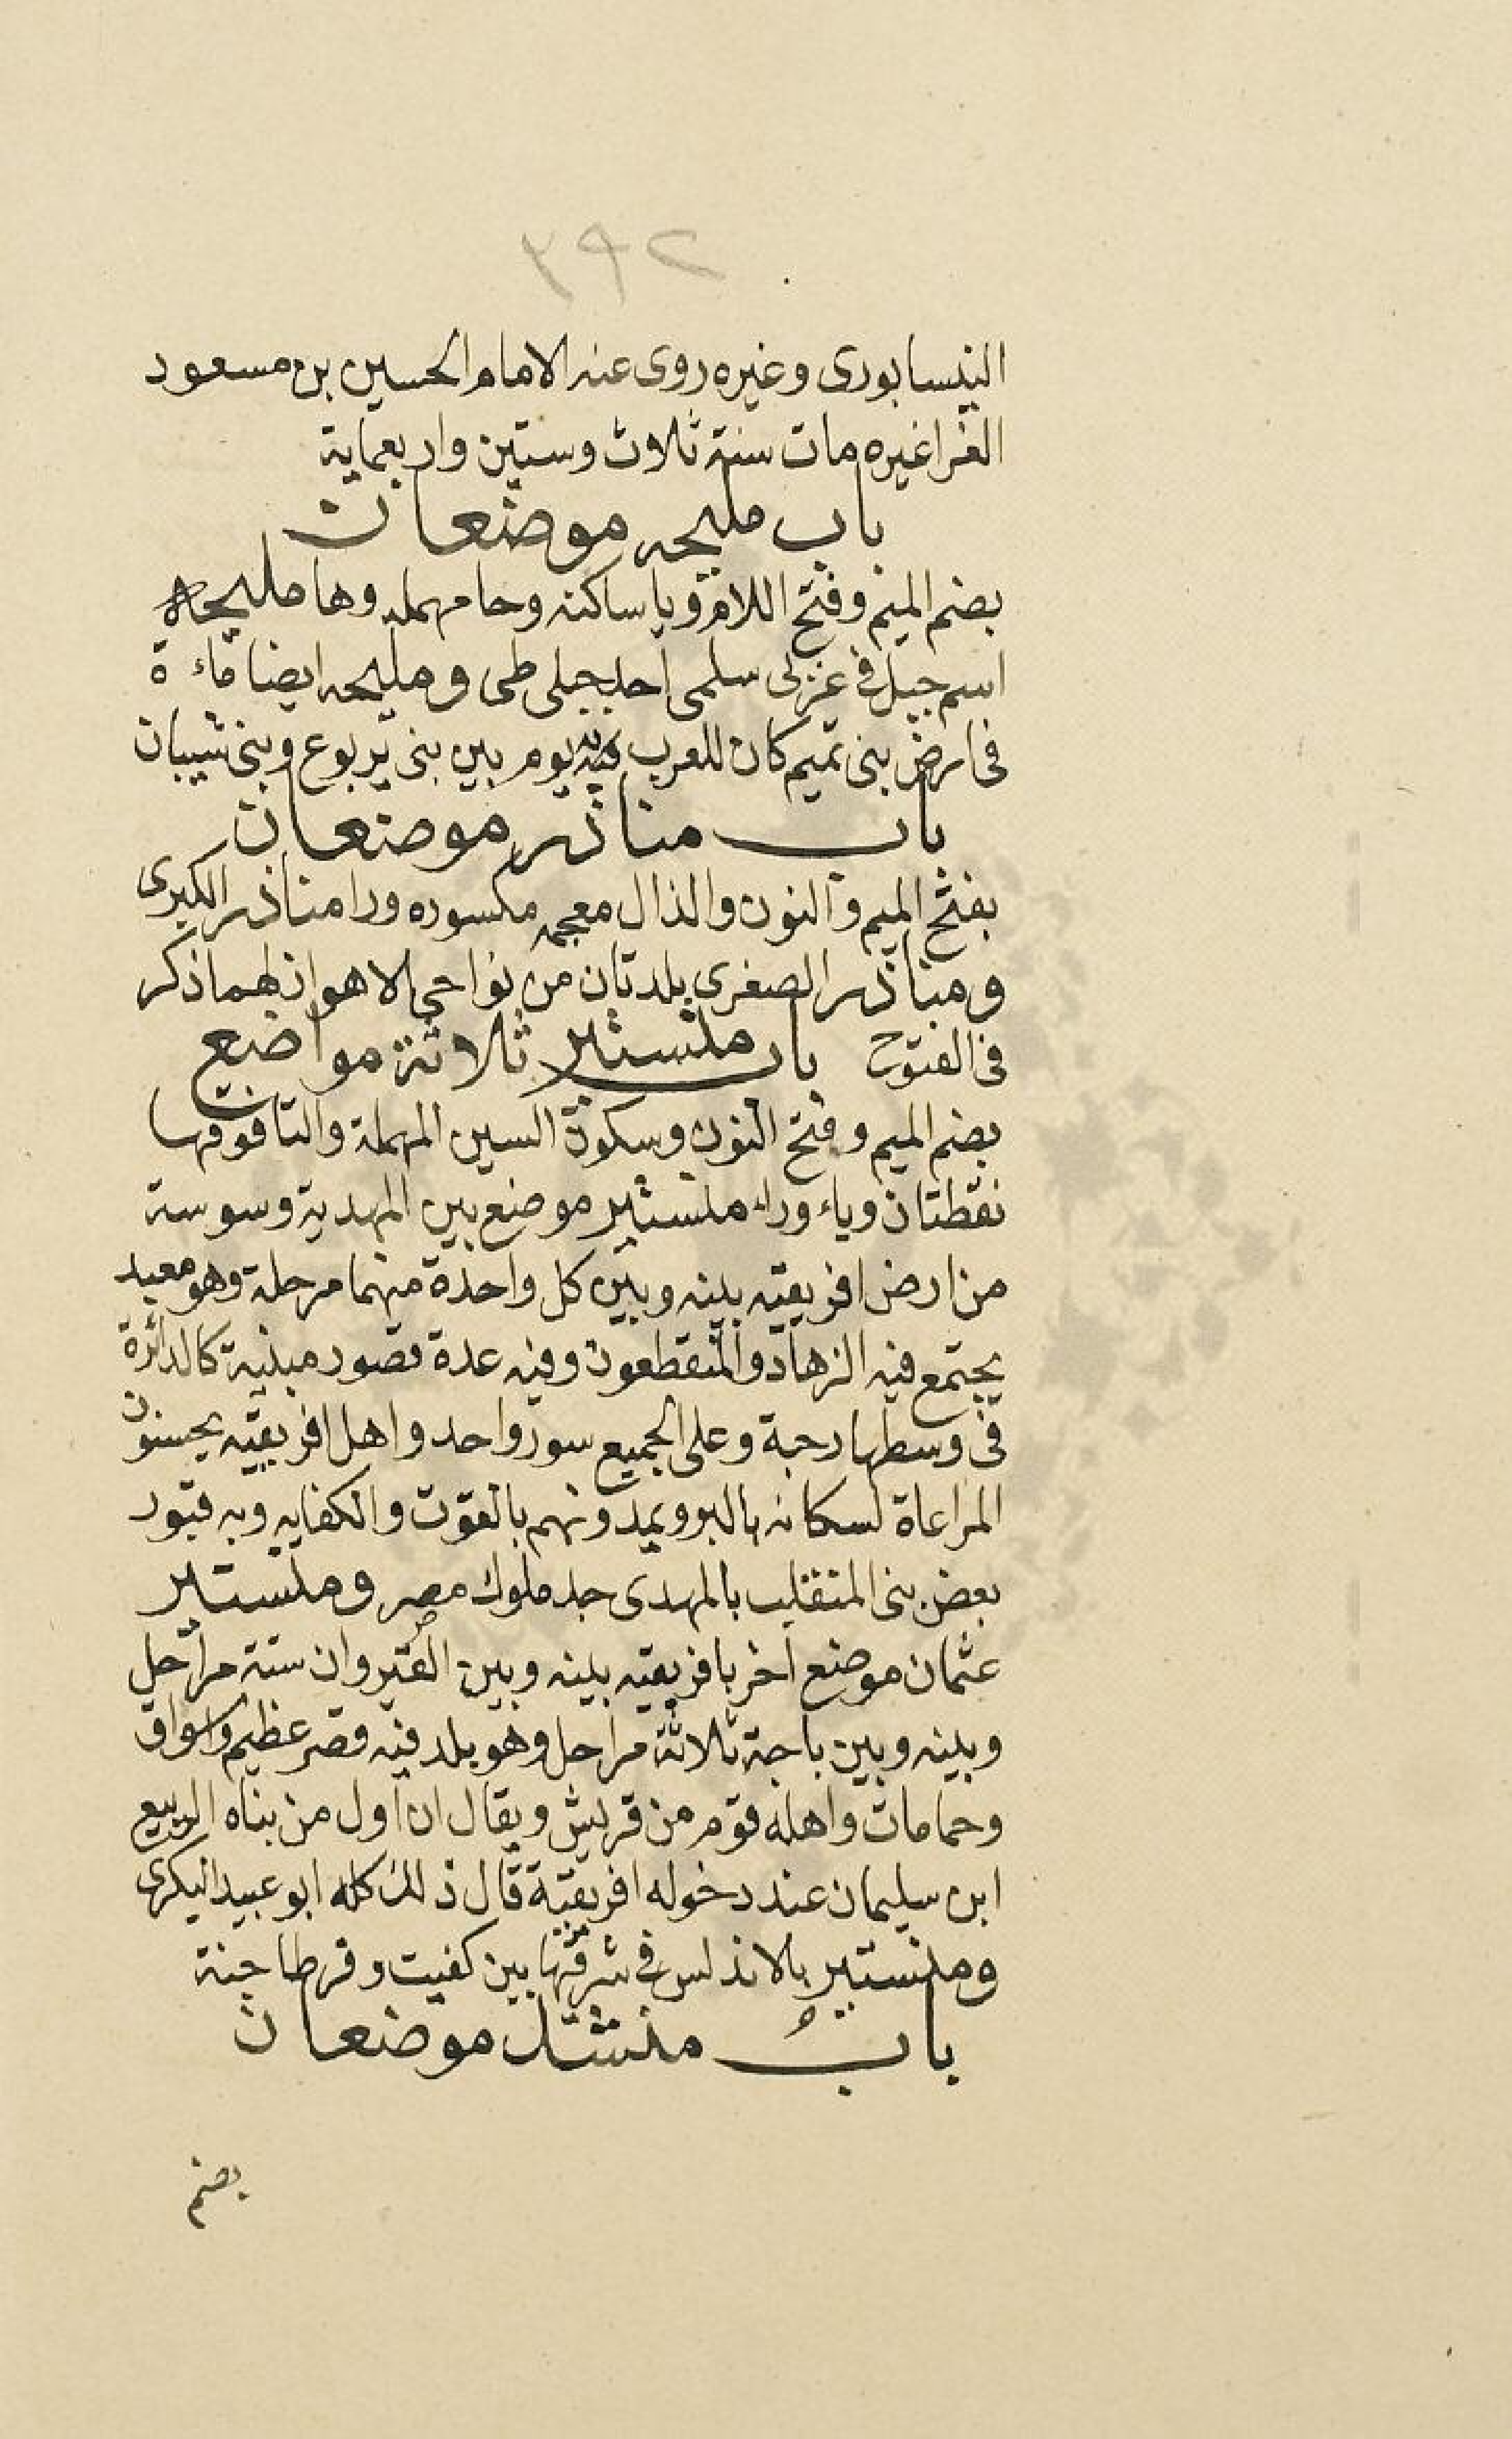 ٣٩٢
النيسابورى وغيره روى عنه الامام الحسين بن مسعود
الفرا غيره مات سنة ثلاث وستين واربعماية
باب مليحه موضعان
بضم الميم وفتح اللام ويا ساكنه وحا مهمله وها مليحة
اسم جبل فى غربى سلمى احد جبلى طى ومليحه ايضا ماءة
فى ارض بنى تميم كان للعرب فيه يوم بين بنى يربوع وبنى شيبان
باب مناذر موضعان
بفتح الميم والنون والذال معجمه مكسوره ورا مناذر الكبرى
ومناذر الصغرى بلدتان من نواحى الاهواز لهما ذكر
فى الفتوح باب منستير ثلاثة مواضع
بضم الميم وفتح النون وسكون السين المهملة والتا فوقها
نقطتان وياء وراء منستير موضع بين المهدية وسوسة
من ارض افريقيه بينه وبين كل واحدة منهما مرحلة وهو معبد
يجتمع فيه الزهاد والمنقطعون وفيه عدة قصور مبنية كالدائرة
فى وسطها رحبة وعلى الجميع سور واحد واهل افريقيه يحسنون
المراعاة لسكانه بالبر ويمدونهم بالقوت والكفايه وبه قبور
بعض بنى المتقلب بالمهدى جد ملوك مصر ومنستير
عثمان موضع اخر بافريقيه بينه وبين القيروان ستة مراحل
وبينه وبين باجة ثلاثة مراحل وهو بلد فيه قصر عظيم واسواق
وحمامات واهله قوم من قريش ويقال ان اول من بناه الربيع
ابن سليمان عند دخوله افريقية قال ذلك كله ابو عبيد البكرى
ومنستير بالاندلس فى شرقيها بين كفيت وقرطاجنة
باب منشتل موضعان
بضم